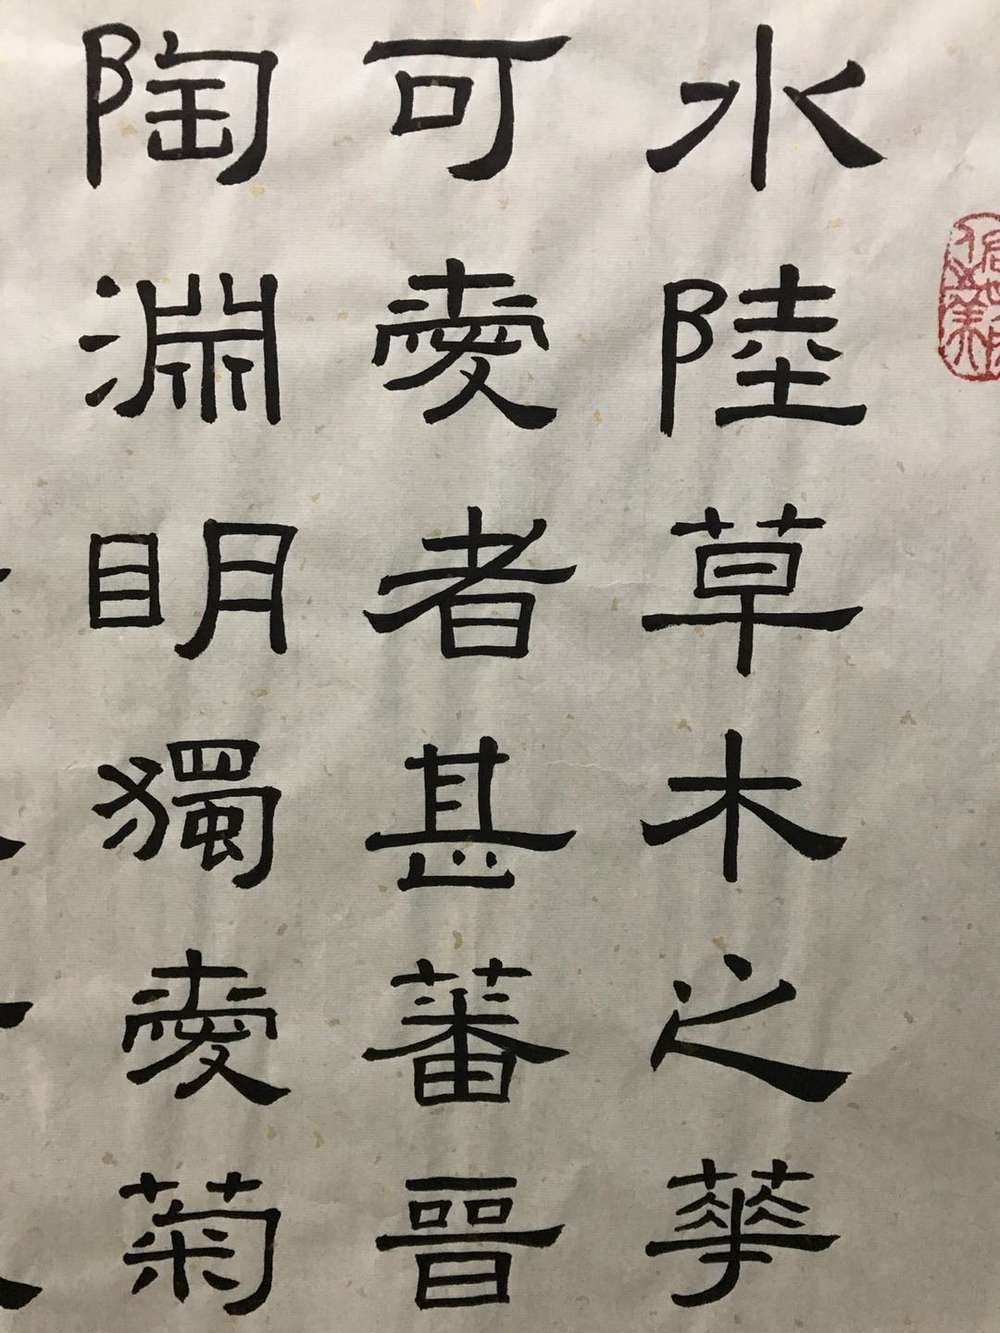 水陸草木之華
可愛者甚蕃晉
陶淵明獨愛菊